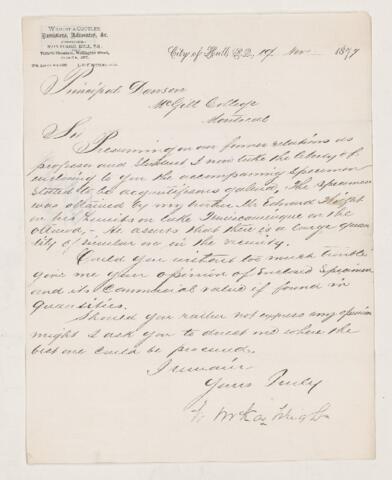 Barristers, Advocates, &c.
City of Hull P.Q. 19 Nov 1877
Principal Dawson
McGill College
Montreal
Sir
Presuming on our former relations as
professor and Student I now take the liberty of
enclosing to you the accompanying specimen
stated to be argentiferous galena. The specimen
was obtained by my brother Mr Edward Wright
on his limits on Lake Temiscamingue on the
Ottawa. He asserts that there is a large quan
tity of similar ore in the vicinity.
Could you without too much trouble
give me your opinion of Enclosed Specimen
and its Commercial value if found in
quantities.
Should you rather not express any opinion
might I ask you to direct me where the
best one could be procured.
I remain
Yours Truly
Wright